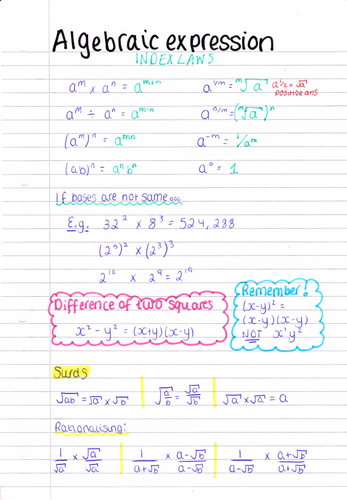 Algebraic expression
INDEX LAWS
aᵐ × aⁿ = aᵐ⁺ⁿ
a^(1/m) = ᵐ√a
a^(1/2) = √a
positive ans
aᵐ ÷ aⁿ = aᵐ⁻ⁿ
a^(n/m) = (ᵐ√a)ⁿ
(aᵐ)ⁿ = aᵐⁿ
a⁻ᵐ = 1/aᵐ
(ab)ⁿ = aⁿbⁿ
a⁰ = 1
If bases are not same...
E.g. 32² × 8³ = 524,288
(2⁵)² × (2³)³
2¹⁰ × 2⁹ = 2¹⁹
Difference of two squares
x² - y² = (x+y)(x-y)
Remember!
(x-y)² =
(x-y)(x-y)
NOT x²y²
Surds
√ab = √a × √b
√(a/b) = √a/√b
√a × √a = a
Rationalising:
1/√a × √a/√a
1/(a+√b) × (a-√b)/(a-√b)
1/(a-√b) × (a+√b)/(a+√b)